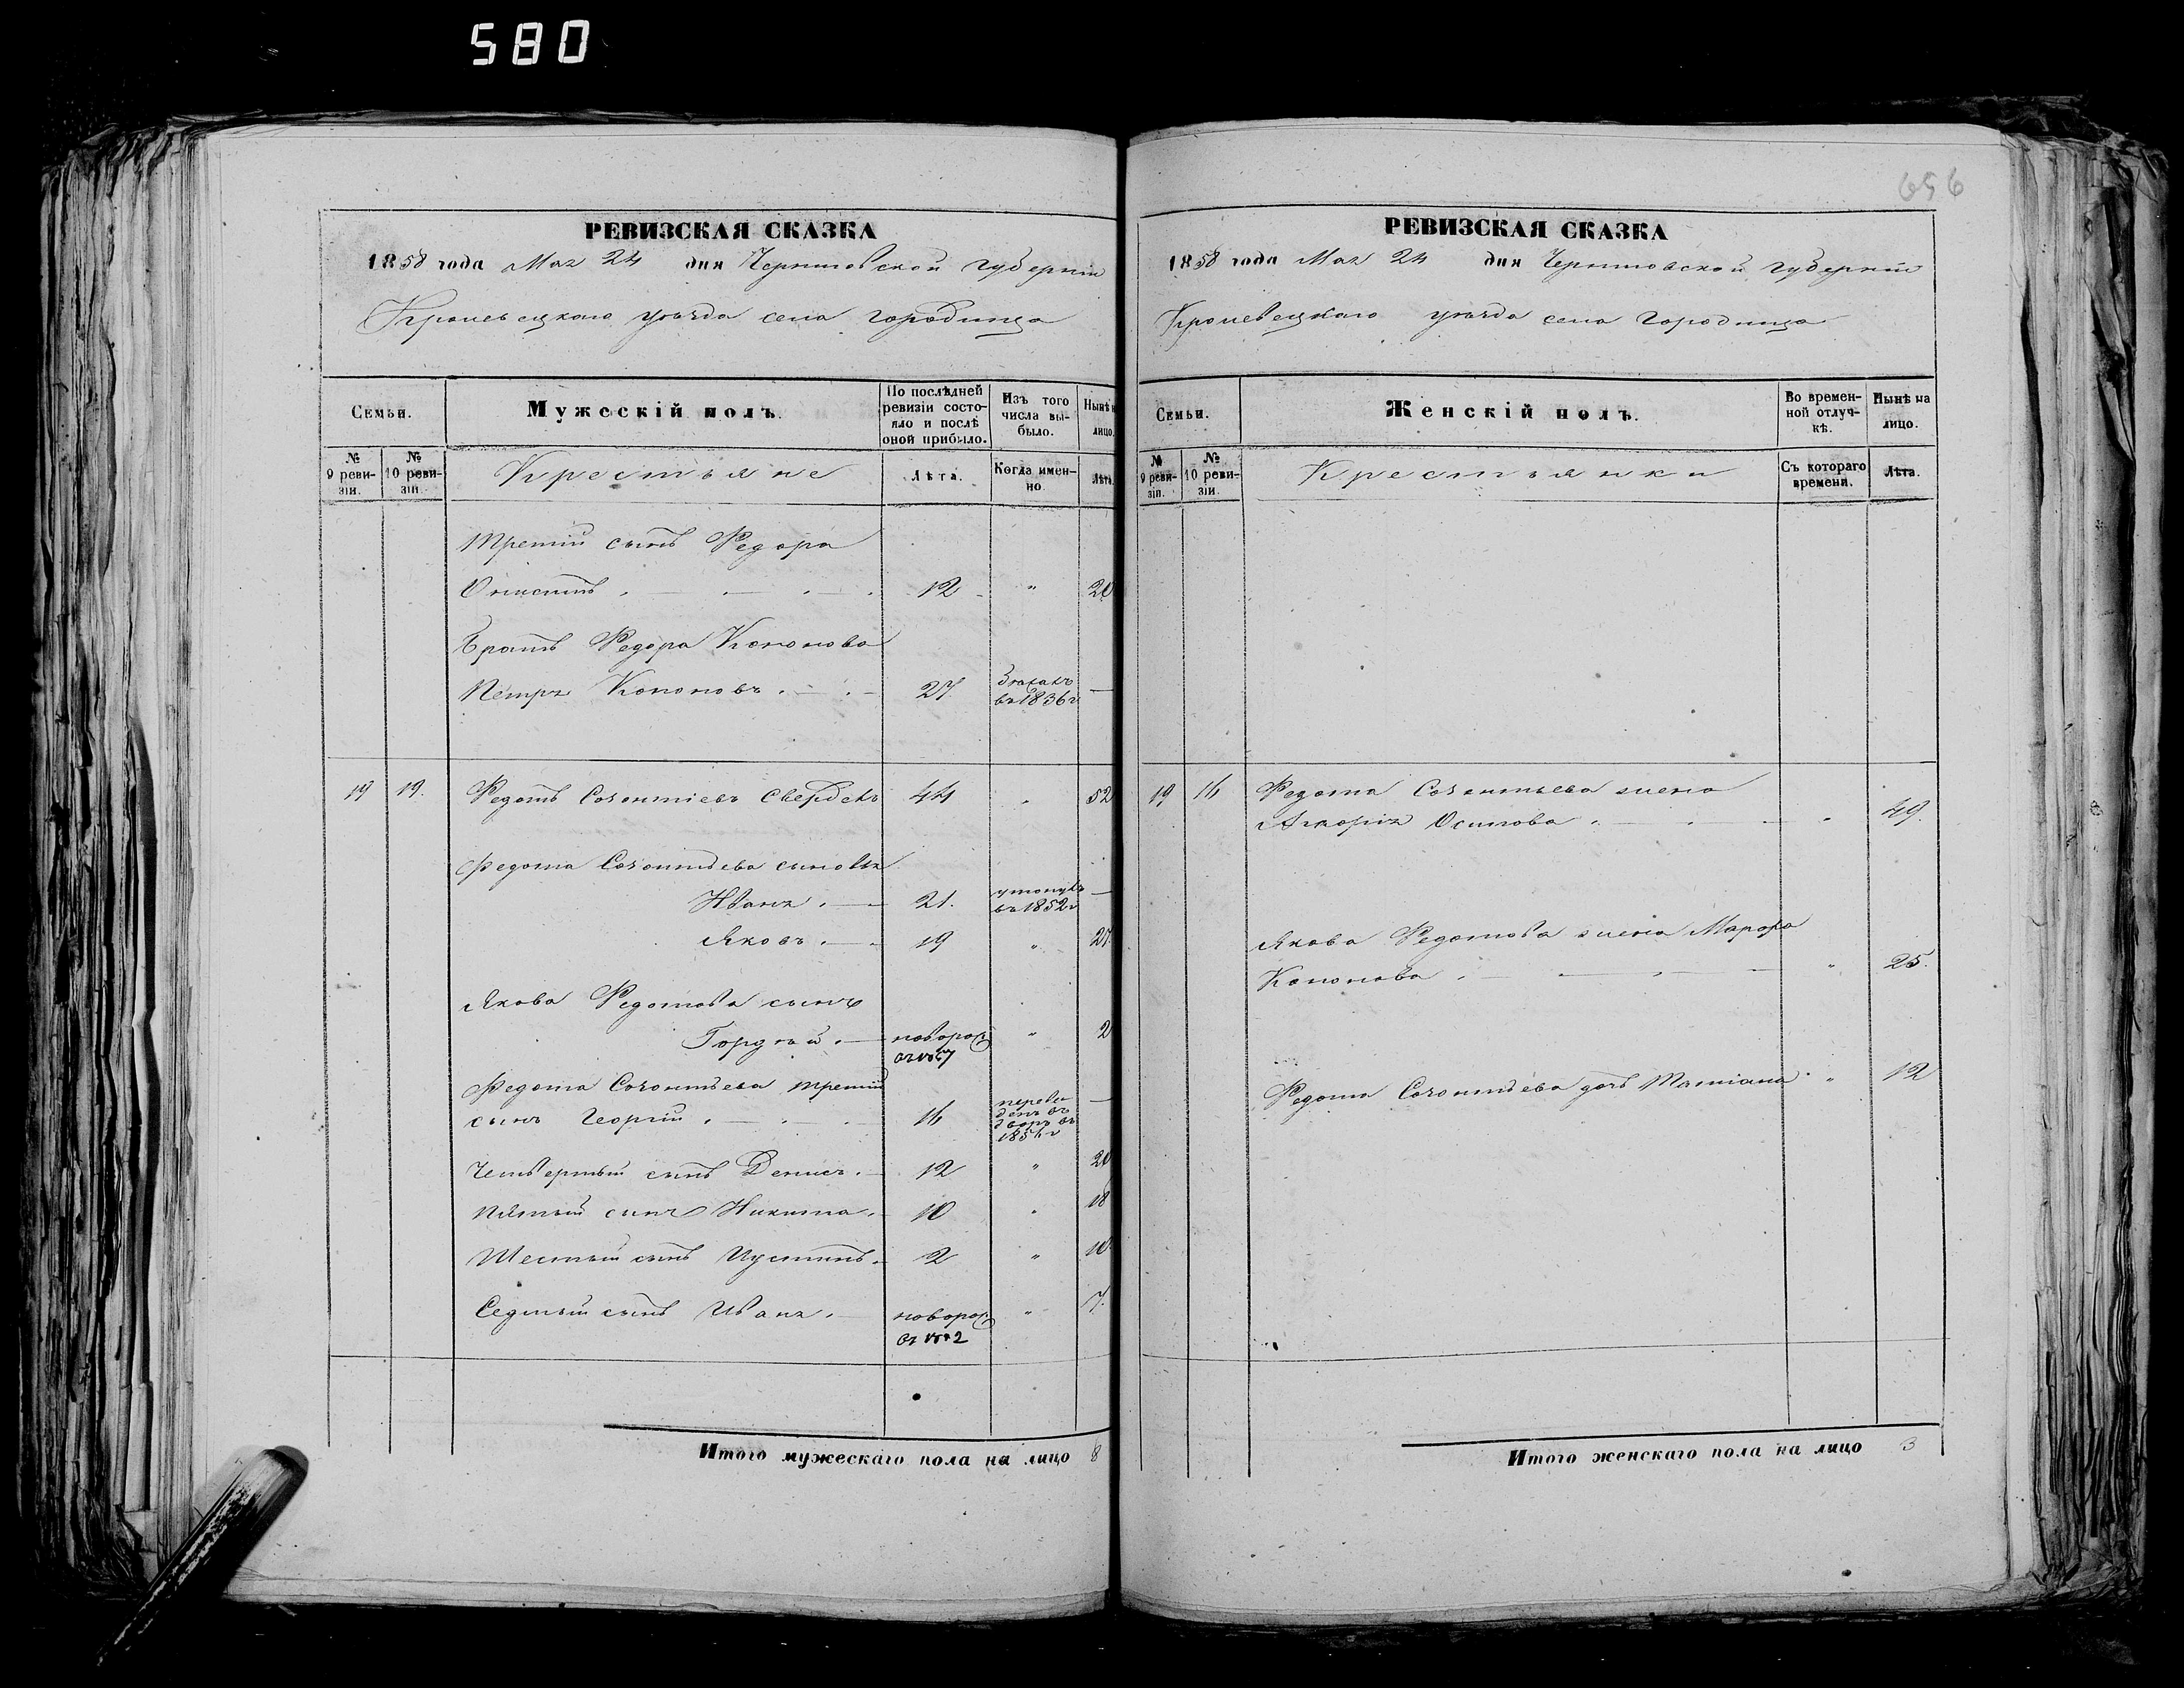 580
656
РЕВИЗСКАЯ СКАЗКА
1858 года Мая 24 дня Черниговской губерніи
Кролевецкаго уѣзда села Городища
Семьи.
Мужескій полъ.
По послѣдней ревизіи состояло и послѣ оной прибыло.
Изъ того числа выбыло.
Нынѣ на лицо.
№ 9 ревизіи.
№ 10 ревизіи.
Крестьяне
Лѣта.
Когда именно
Лѣта.
третій сынъ Федора
12 " 20
Братъ Федора Кононова
Петръ Кононовъ 27 въ 1836 г —
19 19. Федотъ Созонтіевъ 44 " 52
Федота Созонтьева сыновья
Иванъ 21. утонулъ въ 1852 г —
Яковъ 19 " 27.
Якова Федотова сынъ
Гордѣй новорож " 2
Федота Созонтьева третій
сынъ Георгій 16 переведенъ въ дворъ въ —
Четвертый сынъ Денисъ 12 " 20
Пятый сынъ Никита 10 " 18
Шестый сынъ Иустинъ 2 " 10
Седмый сынъ Иванъ новорож " 7.
Итого мужескаго пола на лицо 8
РЕВИЗСКАЯ СКАЗКА
1858 года Мая 24 дня Черниговской губерніи
Кролевецкаго уѣзда села Городища
Семьи.
Женскій полъ.
Во временной отлучкѣ.
Нынѣ на лицо.
№ 9 ревизіи.
№ 10 ревизіи.
Крестьянки
Съ котораго времени.
Лѣта.
19 16 Федота Созонтьева жена
Осипова " 49.
Якова Федотова жена Марфа
Кононова " 25.
Федота Созонтьева дочь Татіана " 12
Итого женскаго пола на лицо 3